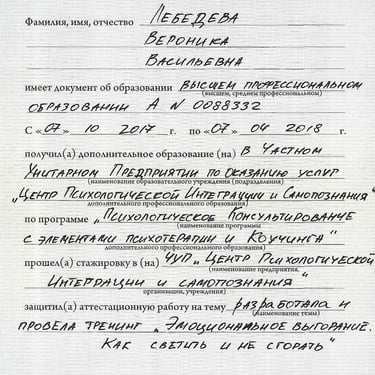 Фамилия, имя, отчество Лебедева
Вероника
Васильевна
имеет документ об образовании высшем профессиональном
(высшем, среднем профессиональном)
образовании А N 0088332
С «07» 10 2017 г. по «07» 04 2018 г.
получил(а) дополнительное образование (на) в Частном
Унитарном Предприятии по оказанию услуг
(наименование образовательного учреждения (подразделения)
„Центр Психологической Интеграции и Самопознания“
дополнительного профессионального образования)
по программе „Психологическое Консультирование
(наименование программы
с элементами психотерапии и Коучинга“
дополнительного профессионального образования)
прошел(а) стажировку в (на) ЧУП „Центр Психологической
(наименование предприятия,
Интеграции и самопознания“
организации, учреждения)
защитил(а) аттестационную работу на тему разработала и
(наименование темы)
провела тренинг „Эмоциональное выгорание.
Как светить и не сгорать“